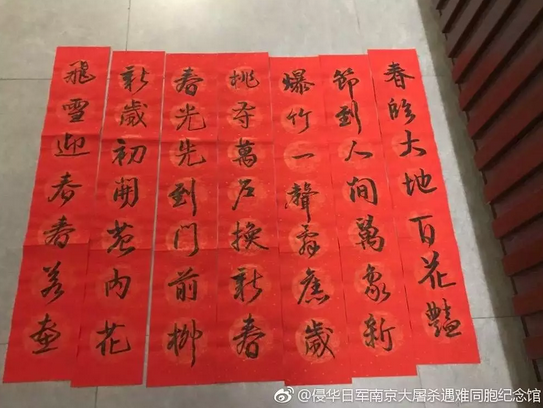 春臨大地百花豔
節到人間萬象新
爆竹一聲辭舊歲
桃符萬戶換新春
春光先到門前柳
新歲初開苑内花
飛雪迎春春若畫
@侵华日军南京大屠杀遇难同胞纪念馆